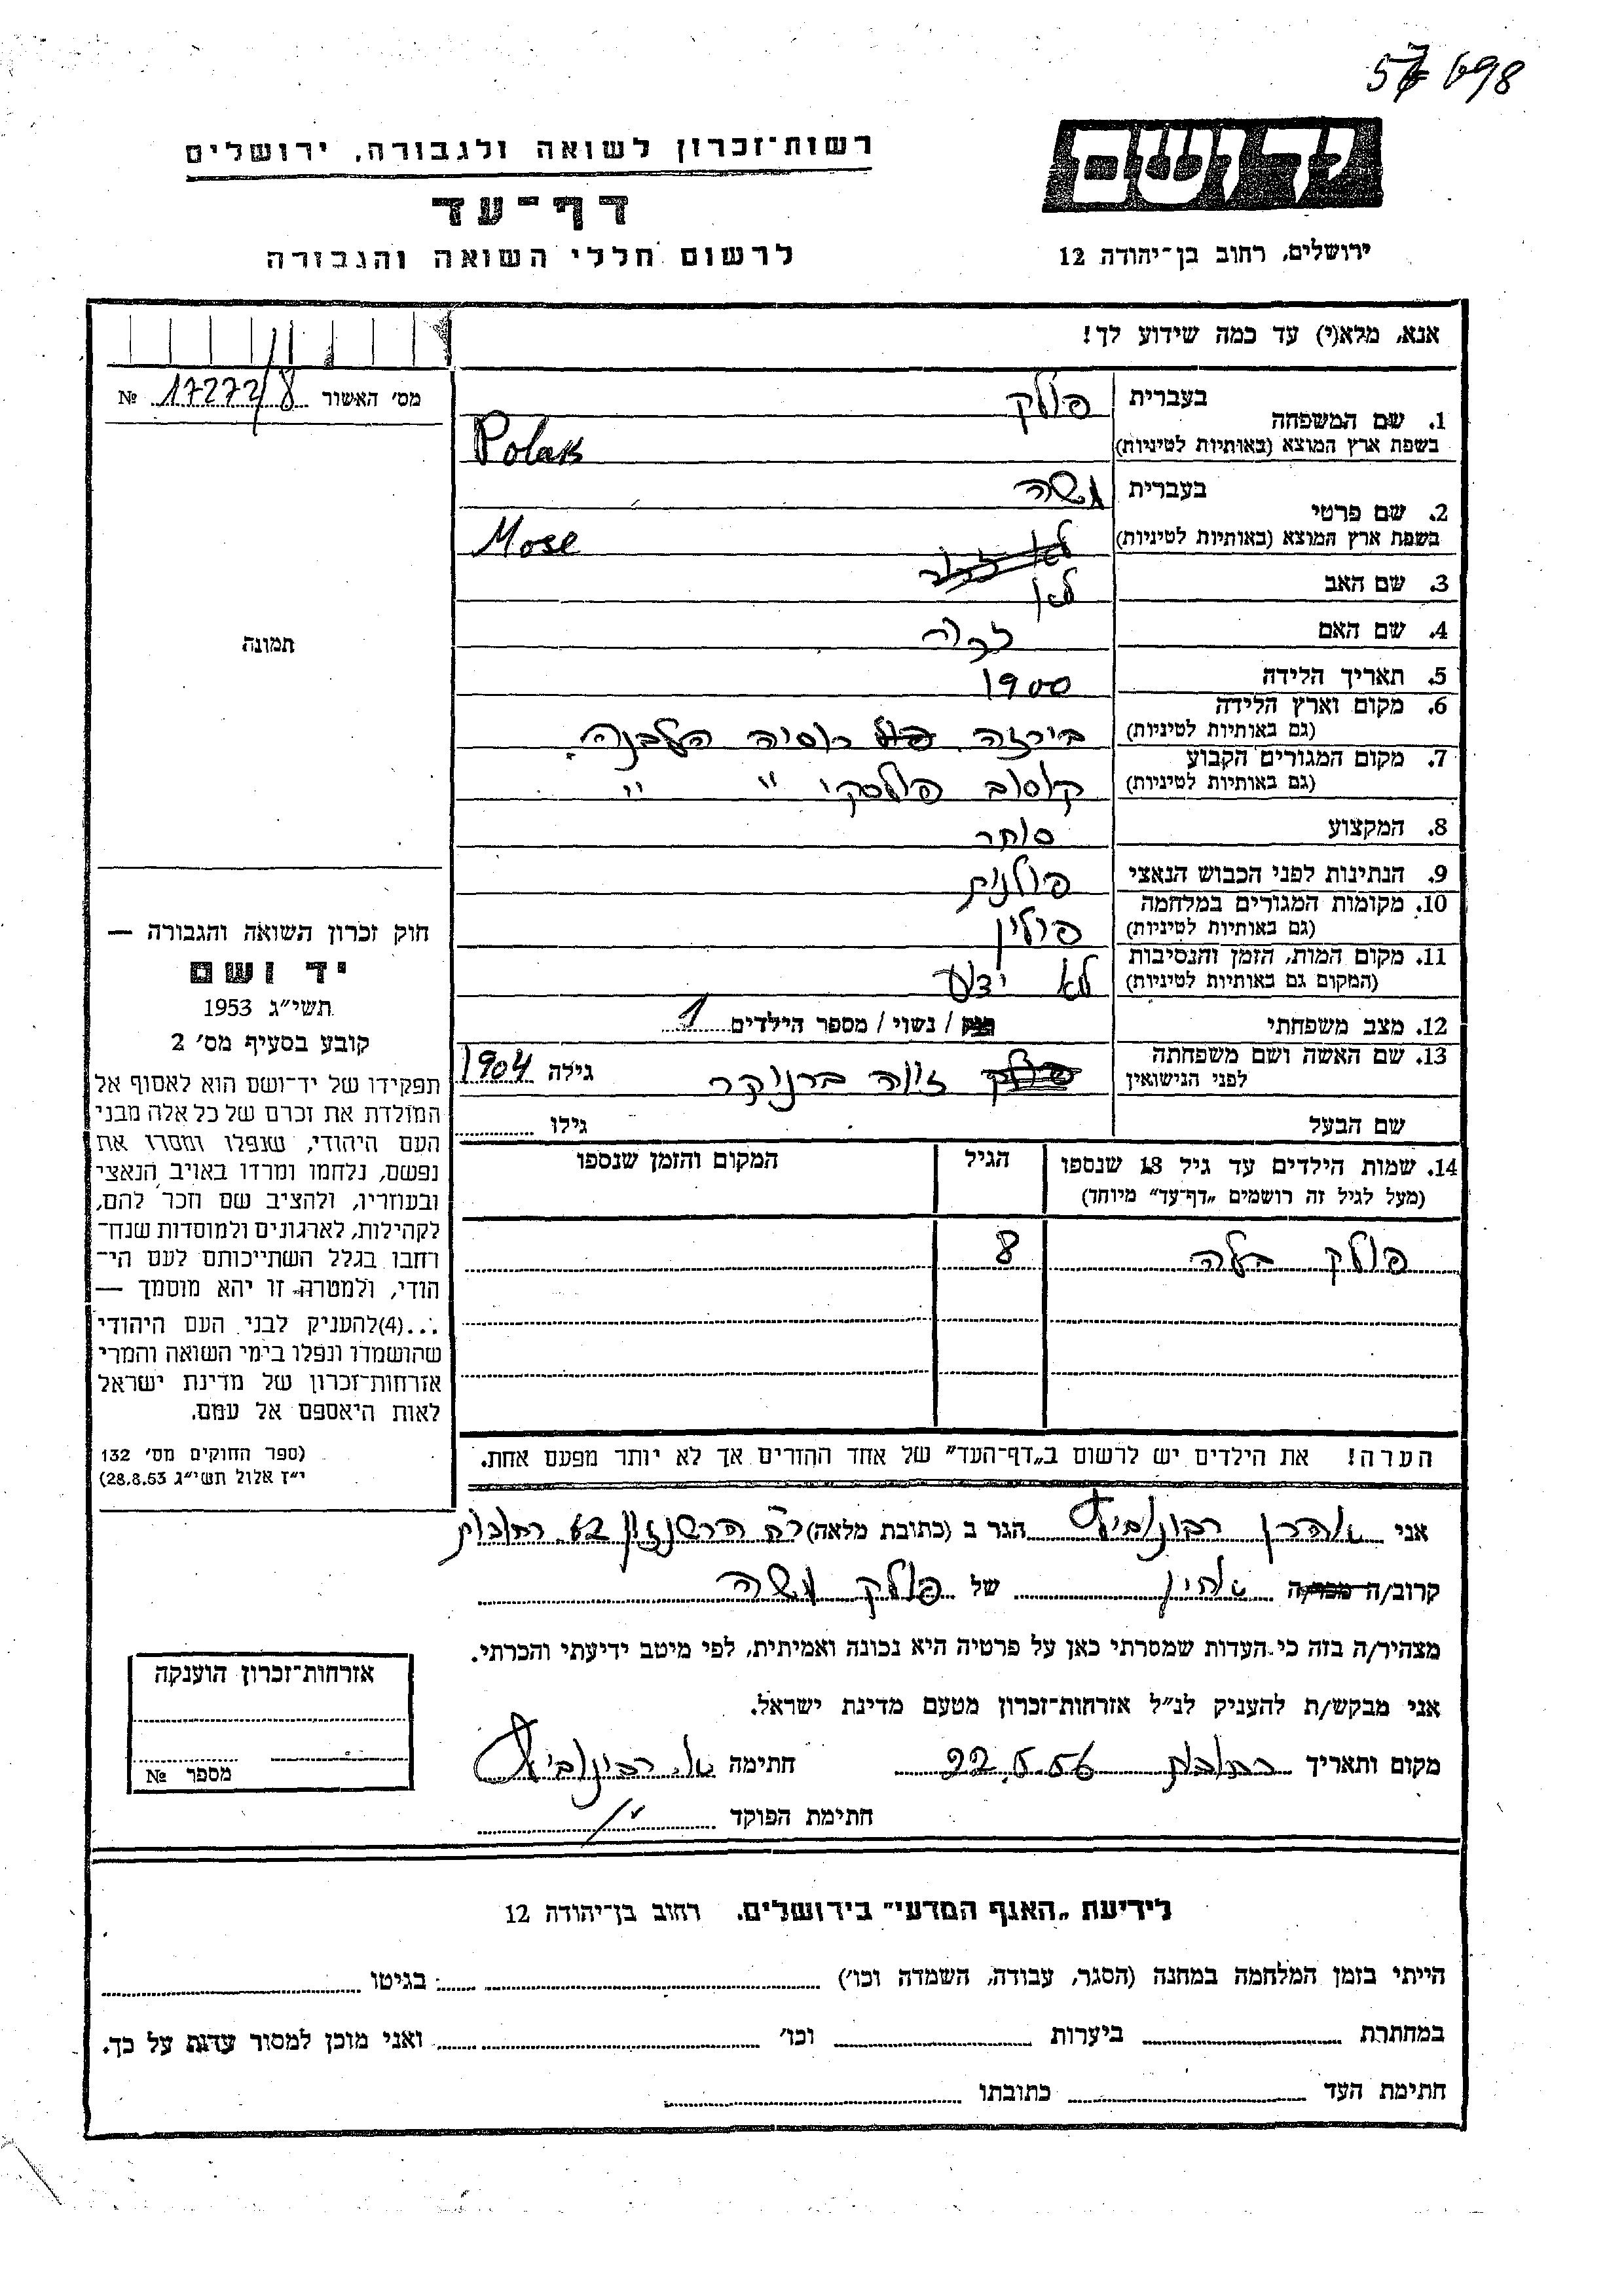 57698
יד ושם
רשות־זכרון לשואה ולגבורה, ירושלים
דף־עד
ירושלים, רחוב בן־יהודה 12
לרשום חללי השואה והגבורה
אנא, מלא(י) עד כמה שידוע לך!
מס׳ האשור 17272/8 №
1. שם המשפחה בעברית פולק
בשפת ארץ המוצא (באותיות לטיניות) Polak
2. שם פרטי בעברית משה
בשפת ארץ המוצא (באותיות לטיניות) Mose
3. שם האב
4. שם האם
5. תאריך הלידה 1900
6. מקום וארץ הלידה בירזה רוסיה הלבנה.
(גם באותיות לטיניות)
7. מקום המגורים הקבוע קוסוב פולסקי " "
(גם באותיות לטיניות)
8. המקצוע סוחר
9. הנתינות לפני הכבוש הנאצי פולנית
10. מקומות המגורים במלחמה פולין
(גם באותיות לטיניות)
11. מקום המות, הזמן והנסיבות לא ידוע
(המקום גם באותיות לטיניות)
12. מצב משפחתי / נשוי / מספר הילדים 1
13. שם האשה ושם משפחתה גילה 1904
לפני הנישואין
שם הבעל גילו
14. שמות הילדים עד גיל 18 שנספו הגיל המקום והזמן שנספו
(מעל לגיל זה רושמים „דף־עד״ מיוחד)
פולק בלה 8
הערה! את הילדים יש לרשום ב„דף־העד״ של אחד ההורים אך לא יותר מפעם אחת.
תמונה
חוק זכרון השואה והגבורה —
יד ושם
תשי״ג 1953
קובע בסעיף מס׳ 2
תפקידו של יד־ושם הוא לאסוף אל
המולדת את זכרם של כל אלה מבני
העם היהודי, שנפלו ומסרו את
נפשם, נלחמו ומרדו באויב הנאצי
ובעוזריו, ולהציב שם וזכר להם,
לקהילות, לארגונים ולמוסדות שנח־
רבו בגלל השתייכותם לעם הי־
הודי, ולמטרה זו יהא מוסמך —
...(4)להעניק לבני העם היהודי
שהושמדו ונפלו בימי השואה והמרי
אזרחות־זכרון של מדינת ישראל
לאות היאספם אל עמם.
(ספר החוקים מס׳ 132
י״ז אלול תשי״ג 28.8.53)
אני אהרן רבינוביץ הגר ב (כתובת מלאה) רח הרשנזון 62 רחובות
קרוב/ה של פולק משה
מצהיר/ה בזה כי העדות שמסרתי כאן על פרטיה היא נכונה ואמיתית, לפי מיטב ידיעתי והכרתי.
אני מבקש/ת להעניק לנ״ל אזרחות־זכרון מטעם מדינת ישראל.
מקום ותאריך רחובות 22.5.56 חתימה א. רבינוביץ
חתימת הפוקד
אזרחות־זכרון הוענקה
מספר №
לידיעת „האגף המדעי״ בירושלים. רחוב בן־יהודה 12
הייתי בזמן המלחמה במחנה (הסגר, עבודה, השמדה וכו׳) בגיטו
במחתרת ביערות וכו׳ ואני מוכן למסור עדות על כך.
חתימת העד כתובתו